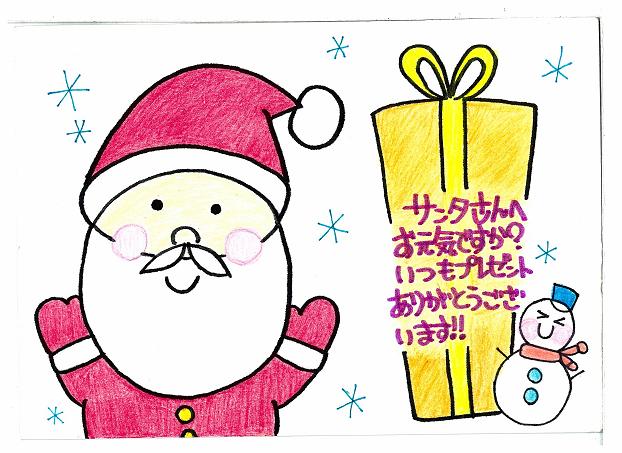 サンタさんへ
お元気ですか?
いつもプレゼント
ありがとうござい
います!!